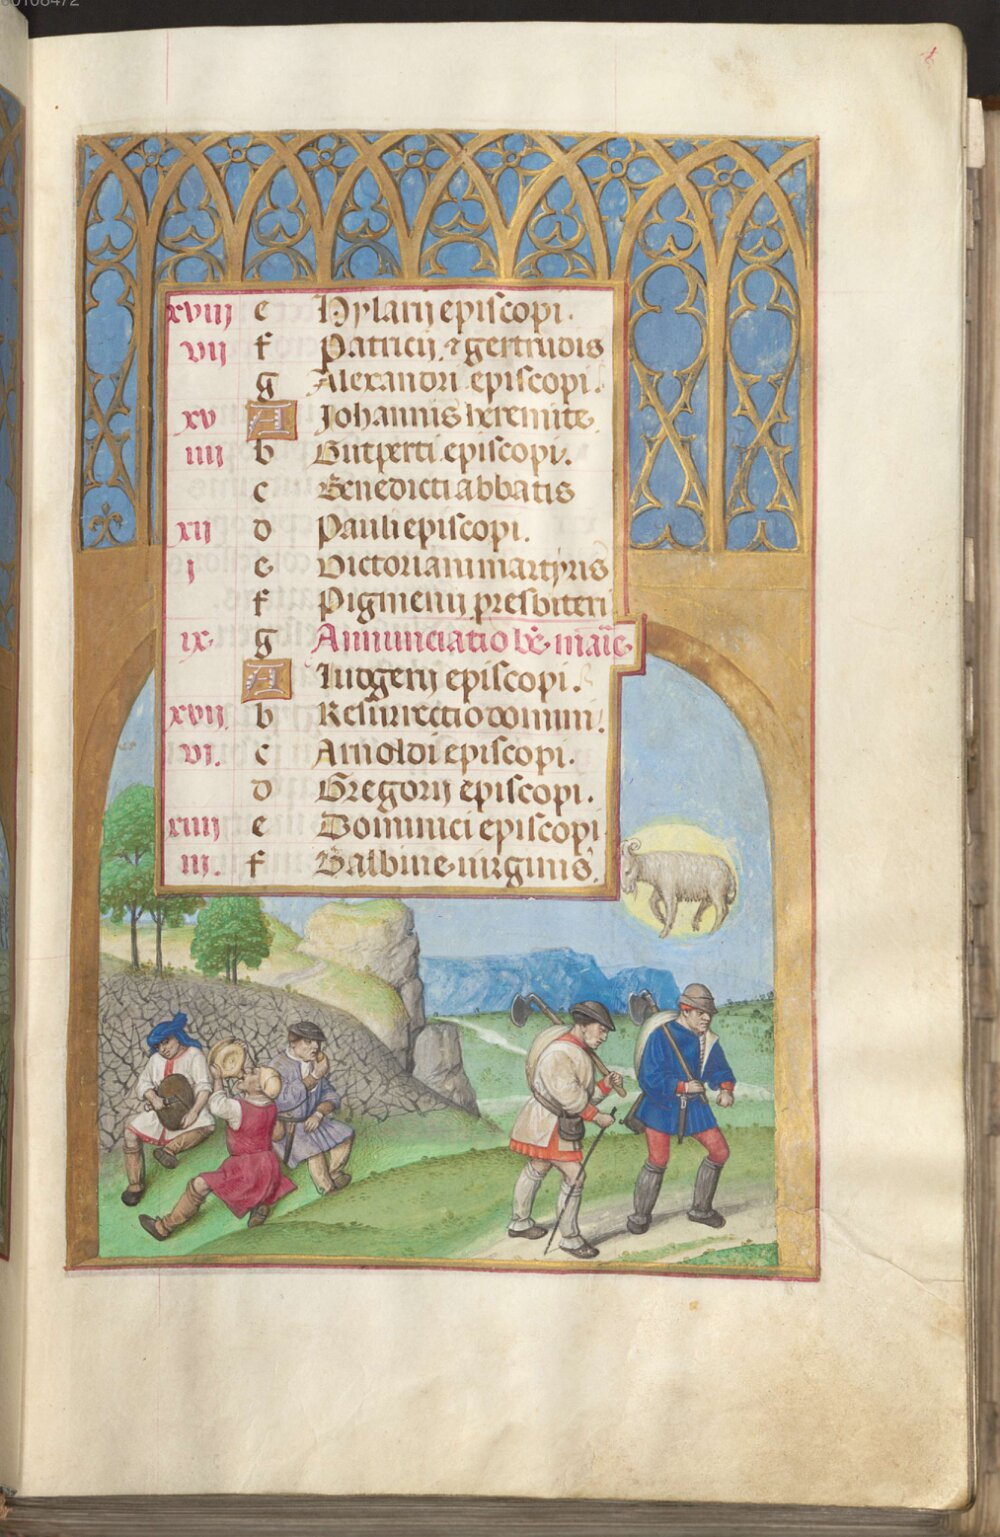 00108472
xviij e Hylarij episcopi.
vij f Patricij ⁊ gertrudis
g Alexandri episcopi.
xv A Johannis heremite
iiij b Gutperti episcopi.
c Benedicti abbatis
xij d Pauli episcopi.
j e Victoriani martyris
f Pigmenij presbiteri
ix g Annunciatio be marie
A ludgerij episcopi.
xvij. b Resurrectio domini.
vj. c Arnoldi episcopi.
d Gregorij episcopi.
xiiij e Dominici episcopi
iij. f Balbine virginis.